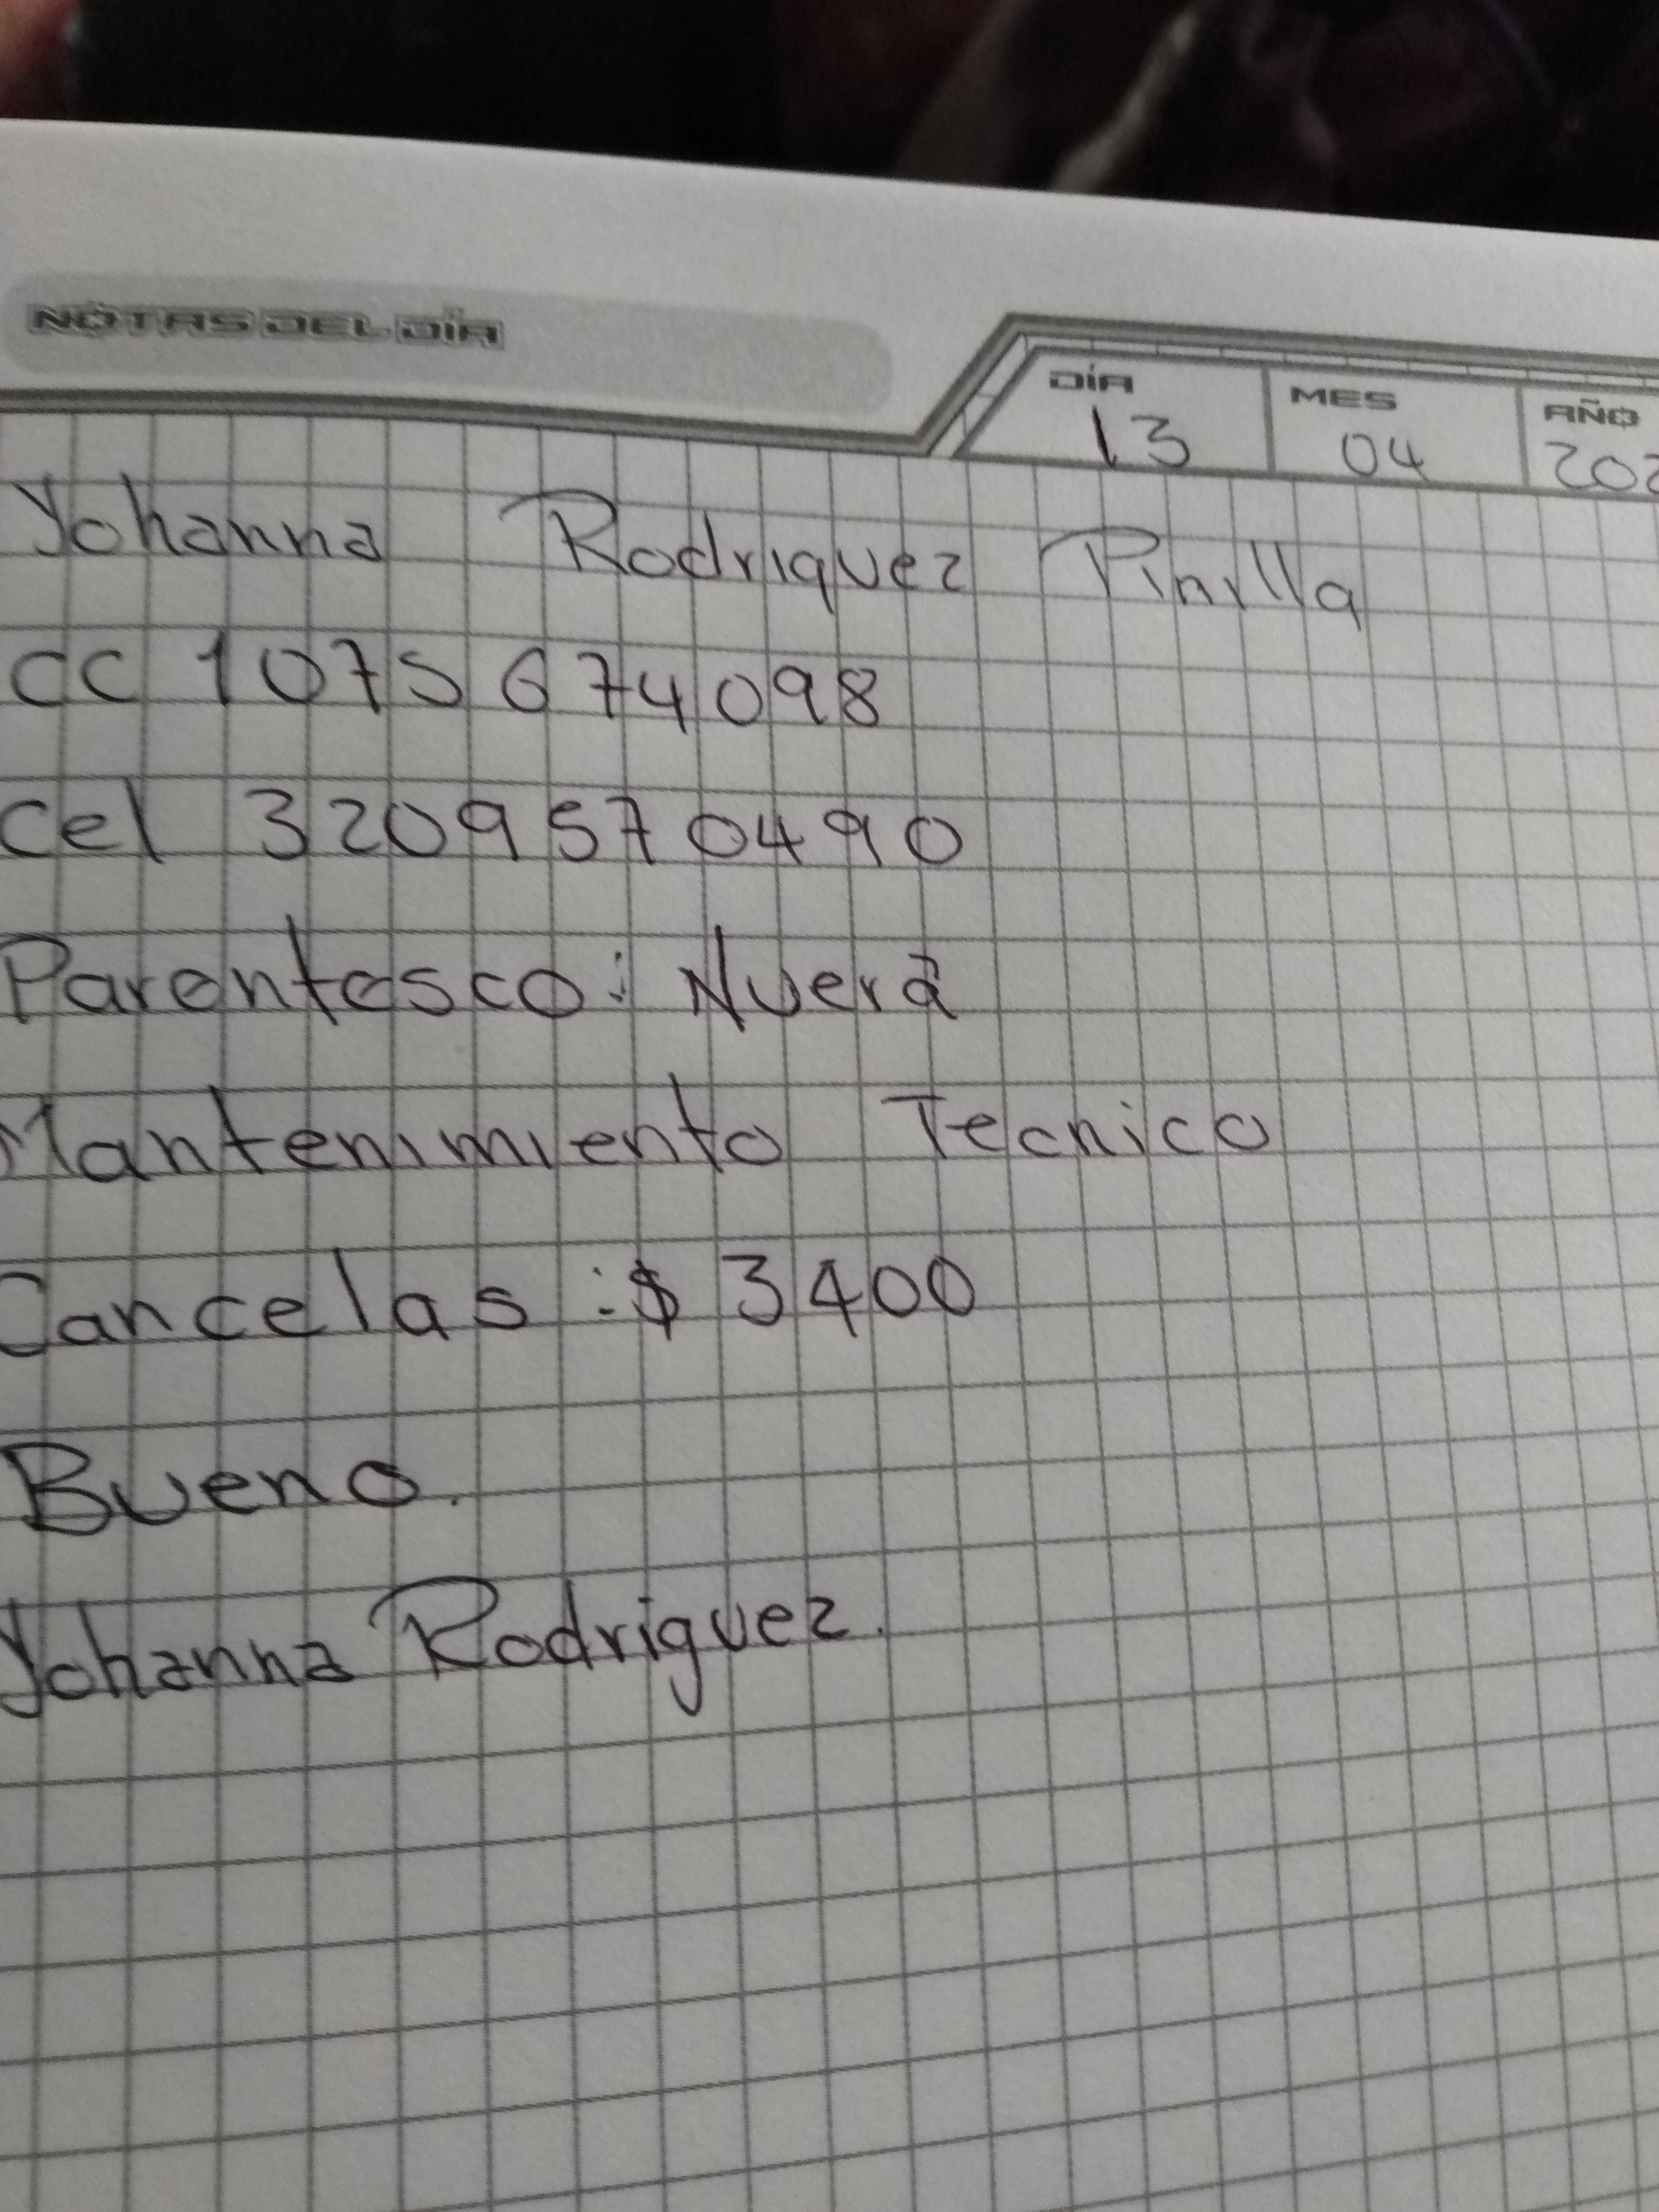 NOTAS DEL DÍA
DÍA MES AÑO
13 04 202
Yohanna Rodriguez Pinilla
CC 1075674098
Cel 3209570490
Parentesco: Nuera
Mantenimiento Tecnico
Cancelas :$ 3400
Bueno.
Yohanna Rodriguez.